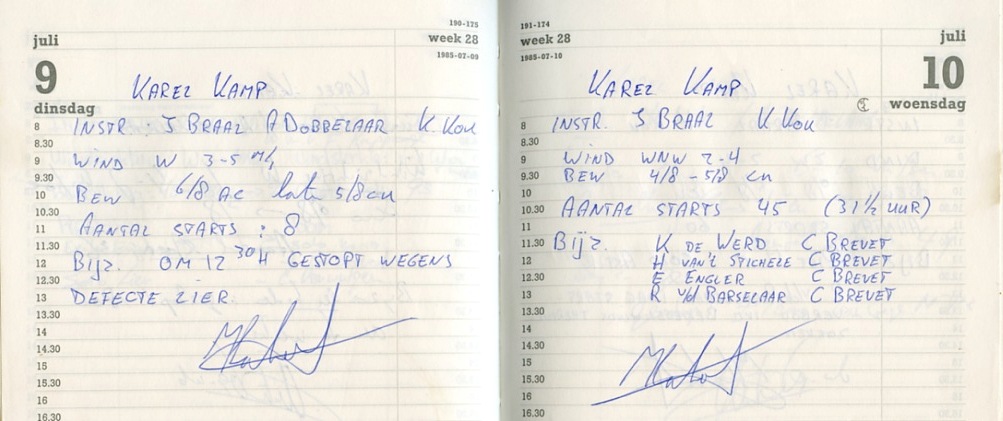 190-175
juli
week 28
1985-07-09
9
dinsdag
KAREL KAMP
8 INSTR: J BRAAL A DOBBELAAR K KOU
8.30
9 WIND W 3-5 M/s
9.30
10 BEW 6/8 AC later 5/8 cu
10.30
11 AANTAL STARTS : 8
11.30
12 BIJZ. OM 12 30H GESTOPT WEGENS
12.30
13 DEFECTE LIER
13.30
14
14.30
15
15.30
16
16.30
191-174
week 28
juli
1985-07-10
10
woensdag
KAREL KAMP
8 INSTR. J BRAAL K KOU
8.30
9 WIND WNW 2-4
9.30 BEW 4/8 - 5/8 cu
10
10.30 AANTAL STARTS 45 (31½ UUR)
11
11.30 BIJZ. K DE WERD C BREVET
12 H VAN'T STICHELE C BREVET
12.30 E ENGLER C BREVET
13 R v/d BARSELAAR C BREVET
13.30
14
14.30
15
15.30
16
16.30